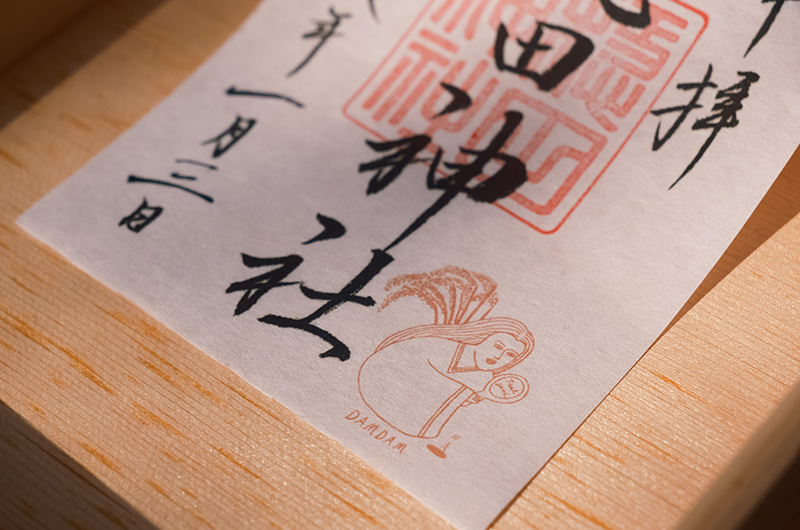 拝
田神社
年一月三日
DAMDAM